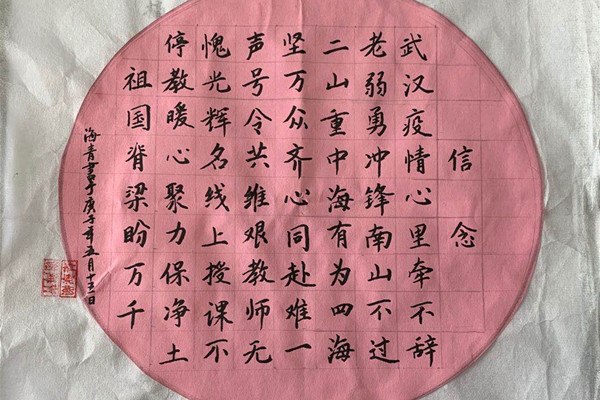 信念
武汉疫情心里牵不辞
老弱勇冲锋南山不过
二山重中海有为四海
坚万众齐心同赴难一
声号令共维艰教师无
愧光辉名线上授课不
停教暖心聚力保净土
祖国脊梁盼万千
海青書于庚子年五月十三日